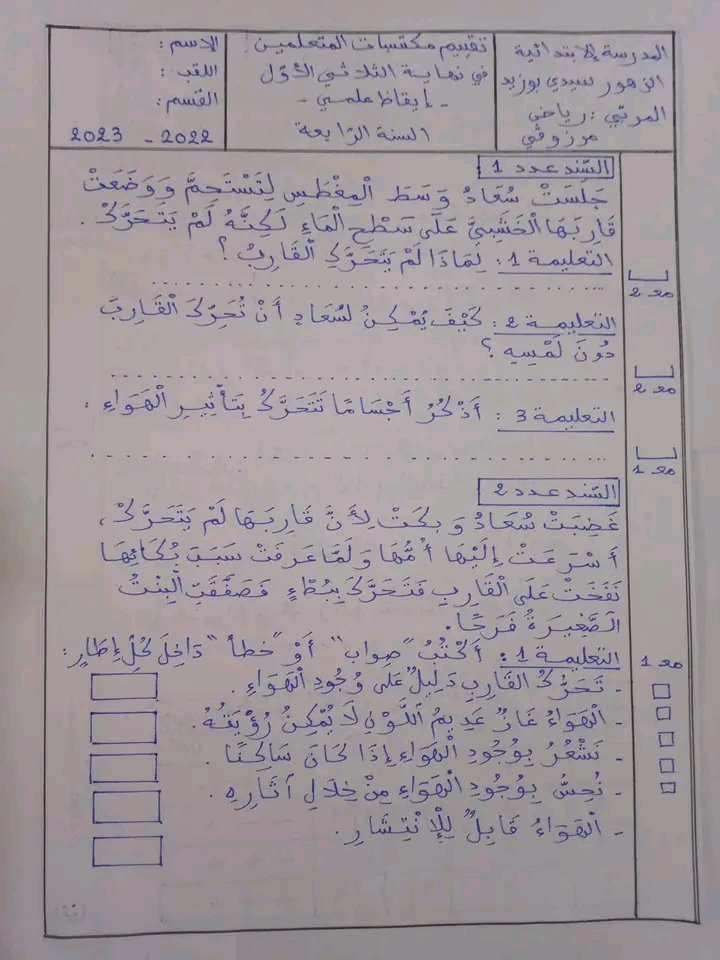 المدرسة الابتدائية
الزهور سيدي بوزيد
المربّي : رياض
مرزوقي
تقييم مكتسبات المتعلمين
في نهاية الثلاثي الأوّل
- إيقاظ علمي -
السنة الرّابعة
الاسم :
اللقب :
القسم :
2022 - 2023
السّند عدد 1
جَلَسَتْ سُعَادُ وَسَطَ الْمِغْطَسِ لِتَسْتَحِمَّ وَوَضَعَتْ
قَارِبَهَا الْخَشَبِيَّ عَلَى سَطْحِ الْمَاءِ لَكِنَّهُ لَمْ يَتَحَرَّكْ.
التعليمة 1 : لِمَاذَا لَمْ يَتَحَرَّكِ الْقَارِبُ ؟
مع 2
التعليمة 2 : كَيْفَ يُمْكِنُ لسُعَادِ أَنْ تُحَرِّكَ الْقَارِبَ
دُونَ لَمْسِهِ ؟
مع 2
التعليمة 3 : أَذْكُرُ أَجْسَامًا تَتَحَرَّكُ بِتَأْثِيرِ الْهَوَاءِ :
مع 1
السّند عدد 2
غَضِبَتْ سُعَادُ وَبكَتْ لِأَنَّ قَارِبَهَا لَمْ يَتَحَرَّكْ،
أَسْرَعَتْ إِلَيْهَا أُمُّهَا وَلَمَّا عَرَفَتْ سَبَبَ بُكَائِهَا
نَفَخَتْ عَلَى الْقَارِبِ فَتَحَرَّكَ بِبُطْءٍ فَصَفَّقَتِ الْبِنْتُ
الصَّغِيرَةُ فَرَحًا.
التعليمة 1 : أَكْتُبُ "صواب" أَوْ "خطأ" دَاخِلَ كُلِّ إِطَارٍ :
مع 1
- تَحَرُّكُ القَارِبِ دَلِيلٌ عَلَى وُجُودِ الْهَوَاءِ.
- الْهَوَاءُ غَازٌ عَدِيمُ اللَّوْنِ لَا يُمْكِنُ رُؤْيَتُهُ.
- نَشْعُرُ بِوُجُودِ الْهَوَاءِ إِذَا كَانَ سَاكِنًا.
- نُحِسُّ بِوُجُودِ الْهَوَاءِ مِنْ خِلَالِ آثَارِهِ.
- الْهَوَاءُ قَابِلٌ لِلْاِنْتِشَارِ.